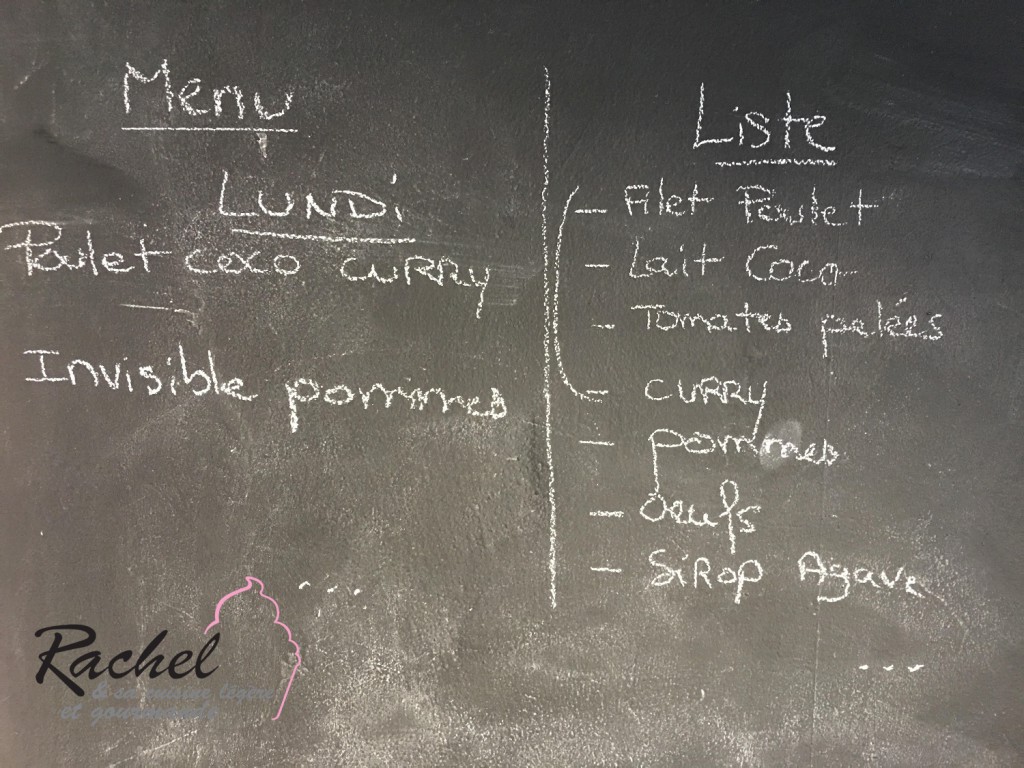 Menu
LUNDi
Poulet coco CURRY
Invisible pommes
...
Liste
- Filet Poulet
- Lait Coco
- Tomates pelées
- CURRY
- pommes
- Oeufs
- SiRop Agave
...
Rachel
& sa cuisine légère
et gourmande